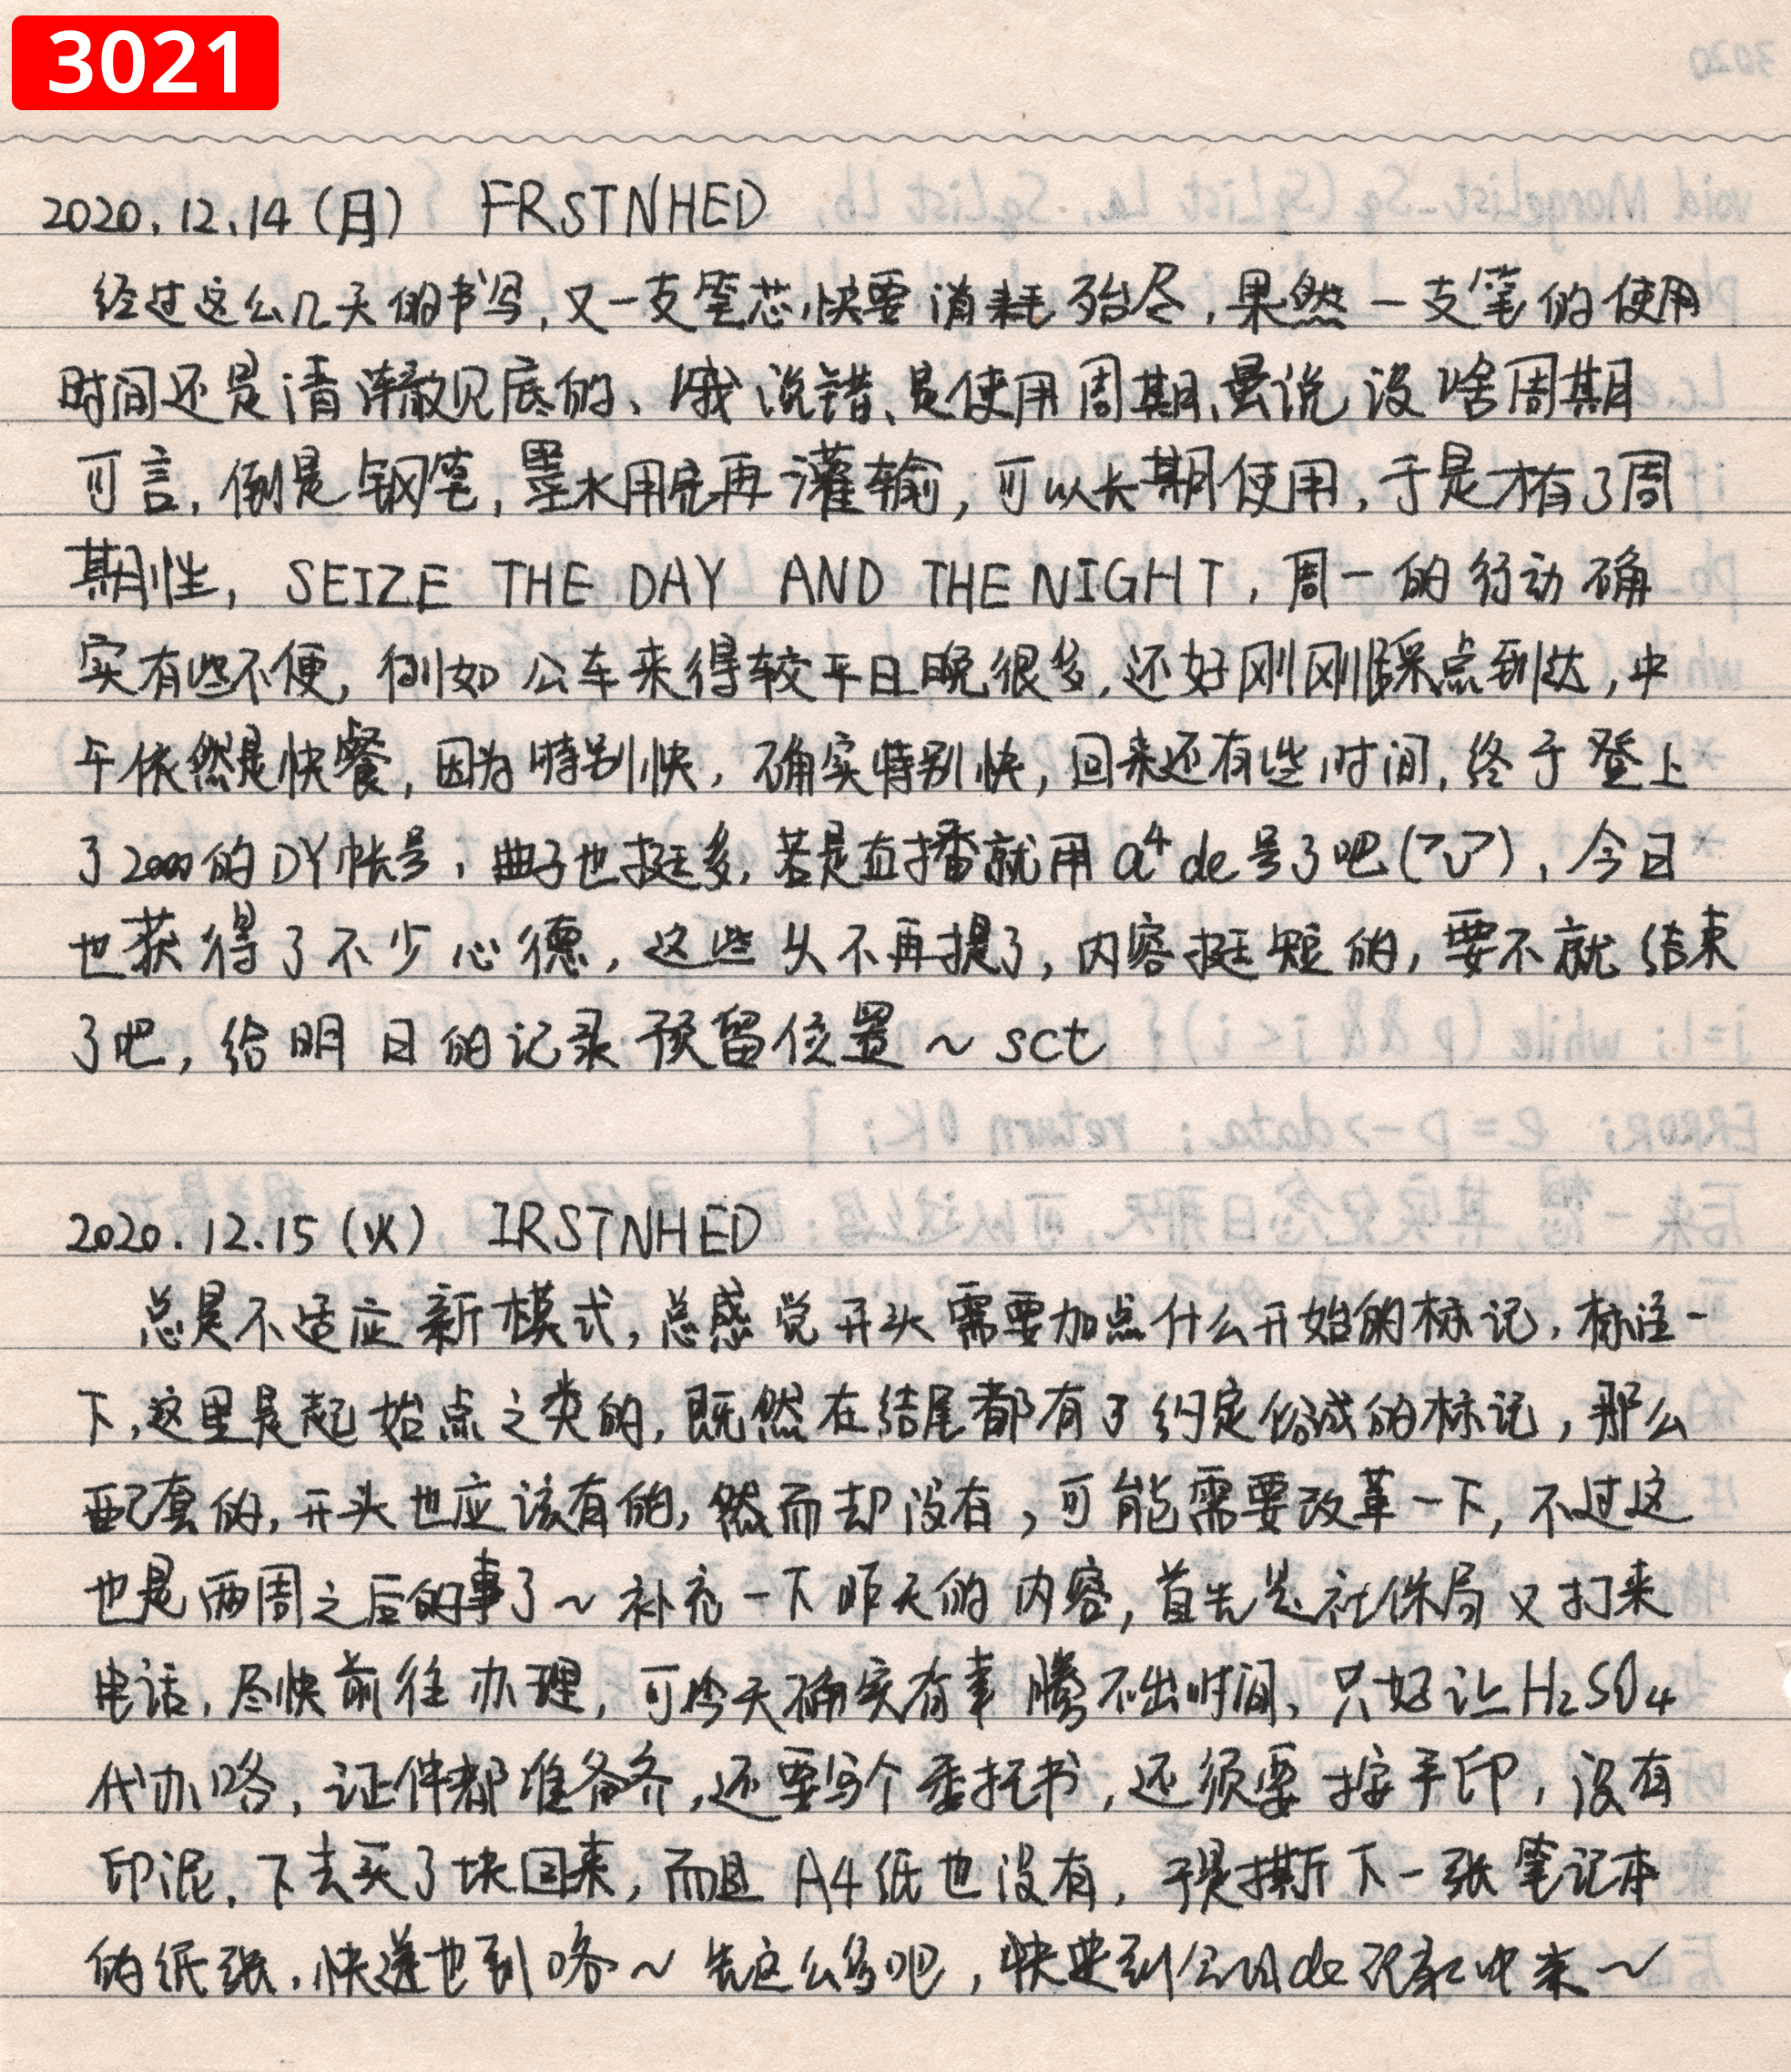 3021
2020.12.14(月) FRSTNHED
经过这么几天的书写,又一支笔芯快要消耗殆尽,果然一支笔的使用
时间还是清澈见底的、哦说错、是使用周期、虽说没啥周期
可言,倒是钢笔,墨水用完再灌输,可以长期使用,于是才有了周
期性,SEIZE THE DAY AND THE NIGHT,周一的行动确
实有些不便,例如公车来得较平日晚很多,还好刚刚踩点到达,中
午依然是快餐,因为特别快,确实特别快,回来还有些时间,终于登上
了2000的DY帐号,曲子也挺多,若是直播就用a⁴de号了吧(),今日
也获得了不少心德,这些就不再提了,内容挺短的,要不就结束
了吧,给明日的记录预留位置~sct
2020.12.15(火) IRSTNHED
总是不适应新模式,总感觉开头需要加点什么开始的标记,标注一
下,这里是起始点之类的,既然在结尾都有了约定俗成的标记,那么
配套的,开头也应该有的,然而却没有,可能需要改革一下,不过这
也是两周之后的事了~补充一下昨天的内容,首先是社保局又打来
电话,尽快前往办理,可今天确实有事腾不出时间,只好让H₂SO₄
代办咯,证件都准备齐,还要写个委托书,还须要按手印,没有
印泥,下去买了块回来,而且A4纸也没有,于是撕下一张笔记本
的纸张,快递也到咯~先这么多吧,快要到de来~